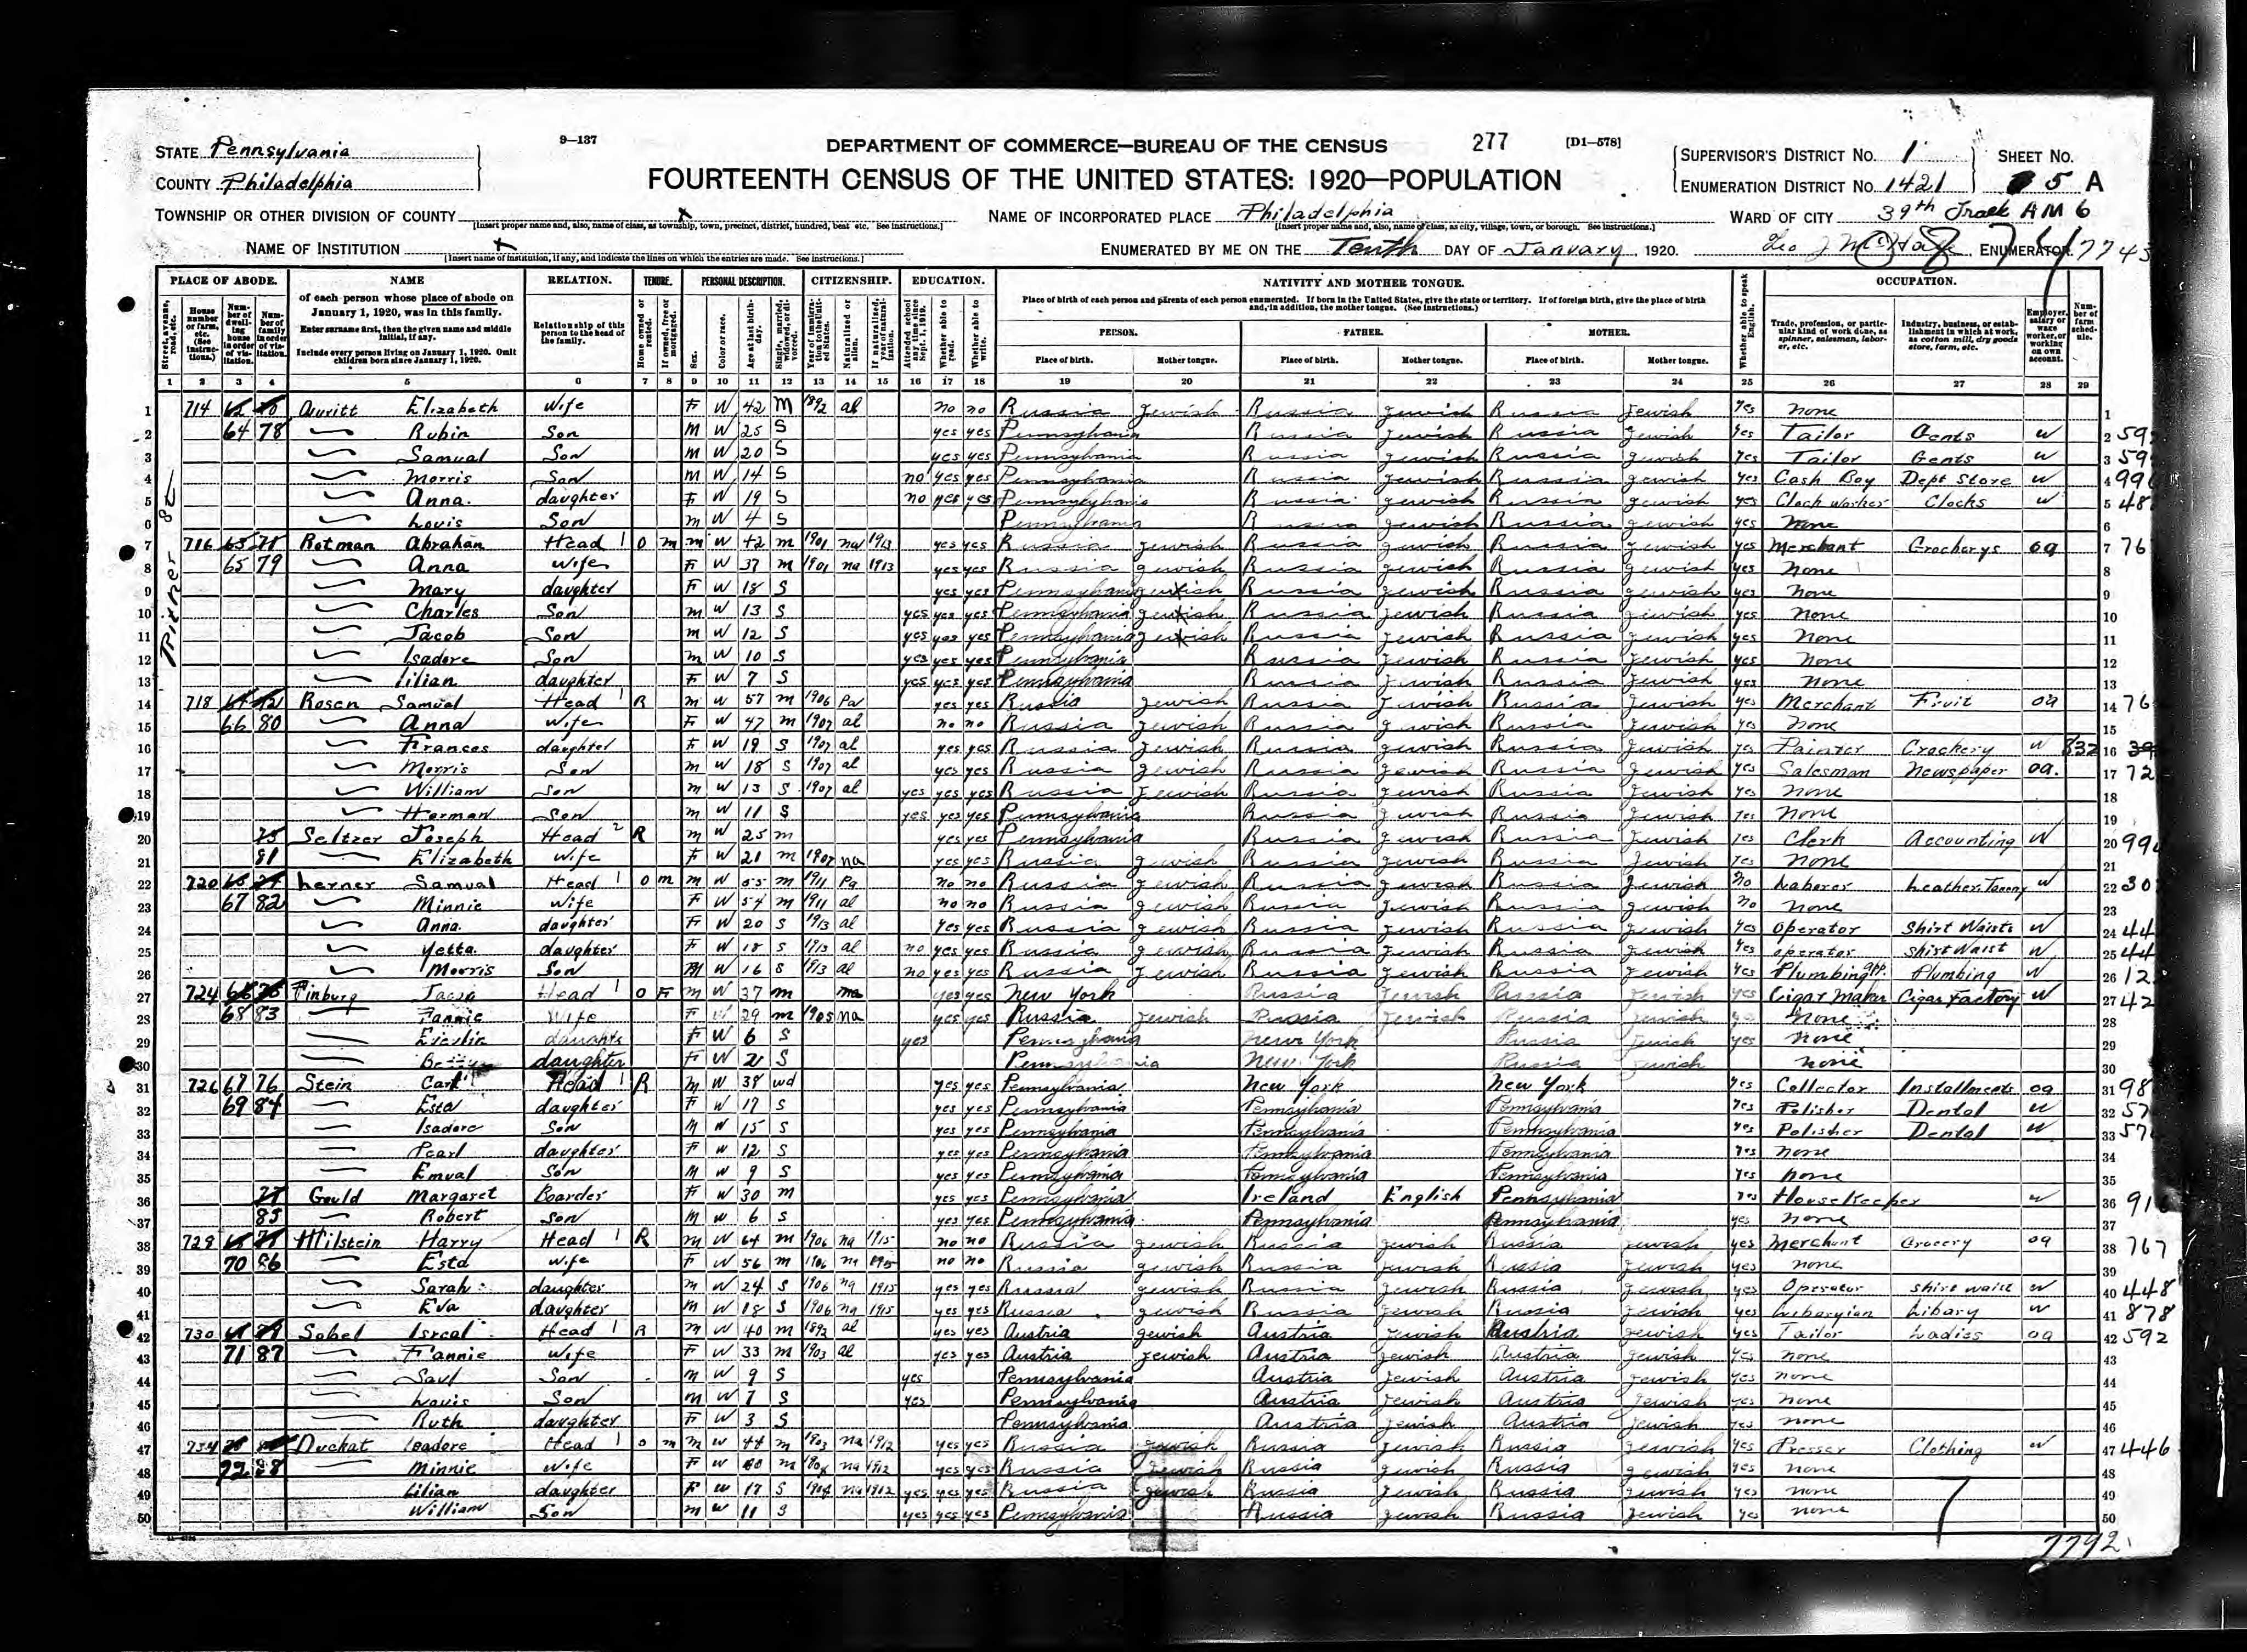 STATE Pennsylvania
COUNTY Philadelphia
9—137
DEPARTMENT OF COMMERCE—BUREAU OF THE CENSUS
277
[D1—578]
FOURTEENTH CENSUS OF THE UNITED STATES: 1920—POPULATION
SUPERVISOR'S DISTRICT NO. 1
ENUMERATION DISTRICT NO. 1421
SHEET NO. 5 A
TOWNSHIP OR OTHER DIVISION OF COUNTY x
[Insert proper name and, also, name of class, as township, town, precinct, district, hundred, beat etc. See instructions.]
NAME OF INCORPORATED PLACE Philadelphia
[Insert proper name and, also, name of class, as city, village, town, or borough. See instructions.]
WARD OF CITY 39th
NAME OF INSTITUTION x
[Insert name of institution, if any, and indicate the lines on which the entries are made. See instructions.]
ENUMERATED BY ME ON THE Tenth DAY OF January, 1920. ENUMERATOR. 7743
PLACE OF ABODE. NAME RELATION. TENURE. PERSONAL DESCRIPTION. CITIZENSHIP. EDUCATION. NATIVITY AND MOTHER TONGUE. OCCUPATION.
1 2 3 4 5 6 7 8 9 10 11 12 13 14 15 16 17 18 19 20 21 22 23 24 25 26 27 28 29
1 714 Elizabeth Wife F W 42 M 1892 al no no Russia Jewish Russia Jewish Russia Jewish Yes none 1
2 64 78 Rubin Son M W 25 S yes yes Pennsylvania Russia Jewish Russia Jewish Yes Tailor Gents W 2
3 Samual Son M W 20 S yes yes Pennsylvania Russia Jewish Russia Jewish Yes Tailor Gents W 3
4 Morris Son M W 14 S no yes yes Pennsylvania Russia Jewish Russia Jewish yes Cash Boy Dept Store W 4
5 Anna daughter F W 19 S no yes yes Pennsylvania Russia Jewish Russia Jewish yes Clock worker Clocks W 5
6 Louis Son M W 4 S Pennsylvania Russia Jewish Russia Jewish yes None 6
7 716 Rotman Abrahan Head 1 O m m W 42 m 1901 na 1913 yes yes Russia Jewish Russia Jewish Russia Jewish yes Merchant Grocherys oa 7 76
8 65 79 Anna Wife F W 37 m 1901 na 1913 yes yes Russia Jewish Russia Jewish Russia Jewish yes None 8
9 Mary daughter F W 18 S yes yes Pennsylvania Jewish Russia Jewish Russia Jewish yes None 9
10 Charles Son m W 13 S yes yes yes Pennsylvania Jewish Russia Jewish Russia Jewish yes None 10
11 Jacob Son m W 12 S yes yes yes Pennsylvania Jewish Russia Jewish Russia Jewish yes None 11
12 Isadore Son m W 10 S yes yes yes Pennsylvania Russia Jewish Russia Jewish yes None 12
13 Lilian daughter F W 7 S yes yes yes Pennsylvania Russia Jewish Russia Jewish yes None 13
14 718 Rosen Samual Head 1 R m W 57 m 1906 Pa yes yes Russia Jewish Russia Jewish Russia Jewish yes Merchant Fruit oa 14 76
15 66 80 Anna Wife F W 47 m 1907 al no no Russia Jewish Russia Jewish Russia Jewish yes None 15
16 Frances daughter F W 19 S 1907 al yes yes Russia Jewish Russia Jewish Russia Jewish yes Painter Crockery W 832 16
17 Morris Son m W 18 S 1907 al yes yes Russia Jewish Russia Jewish Russia Jewish yes Salesman Newspaper oa. 17 72
18 William Son m W 13 S 1907 al yes yes yes Russia Jewish Russia Jewish Russia Jewish yes None 18
19 Herman Son m W 11 S yes yes yes Pennsylvania Russia Jewish Russia Jewish yes None 19
20 Seltzer Joseph Head 2 R m W 25 m yes yes Pennsylvania Russia Jewish Russia Jewish yes Clerk Accounting W 20
21 81 Elizabeth Wife F W 21 m 1907 na yes yes Russia Jewish Russia Jewish Russia Jewish yes None 21
22 720 Lerner Samual Head 1 O m m W 55 m 1911 Pa no no Russia Jewish Russia Jewish Russia Jewish no Laborer W 22 30
23 67 82 Minnie Wife F W 54 m 1911 al no no Russia Jewish Russia Jewish Russia Jewish no None 23
24 Anna daughter F W 20 S 1913 al Yes yes Russia Jewish Russia Jewish Russia Jewish Yes operator Shirt Waists W 24 44
25 Yetta daughter F W 18 S 1913 al no yes yes Russia Jewish Russia Jewish Russia Jewish Yes operator Shirt Waist W 25 44
26 Morris Son M W 16 S 1913 al no yes yes Russia Jewish Russia Jewish Russia Jewish Yes Plumbing app. Plumbing W 26 12
27 724 Finburg Head 1 O F m W 37 m yes yes New York Russia Jewish Russia Jewish yes Cigar Maker Cigar Factory W 27 42
28 68 83 Fannie Wife F W 29 m 1905 na yes yes Russia Jewish Russia Jewish Russia Jewish None 28
29 daughter F W 6 S yes Pennsylvania New York Russia Jewish yes None 29
30 daughter F W 2 S Pennsylvania New York Russia Jewish None 30
31 726 67 76 Stein Carl Head 1 R M W 38 wd yes yes Pennsylvania New York New York Yes Collector Installments oa 31 98
32 69 84 Esta daughter F W 17 S yes yes Pennsylvania Pennsylvania Pennsylvania Yes Polisher Dental W 32 57
33 Isadore Son M W 15 S yes yes Pennsylvania Pennsylvania Pennsylvania Yes Polisher Dental W 33 57
34 Pearl daughter F W 12 S yes yes Pennsylvania Pennsylvania Pennsylvania Yes None 34
35 Emual Son M W 9 S yes yes Pennsylvania Pennsylvania Pennsylvania Yes None 35
36 Gould Margaret Boarder F W 30 m yes yes Pennsylvania Ireland English Pennsylvania Yes House Keeper W 36
37 85 Robert Son M W 6 S yes yes Pennsylvania Pennsylvania Pennsylvania yes None 37
38 728 Milstein Harry Head 1 R m W 64 m 1906 na 1915 no no Russia Jewish Russia Jewish Russia Jewish yes Merchant Grocery oa 38 767
39 70 86 Esta wife F W 56 m 1906 na 1915 no no Russia Jewish Russia Jewish Russia Jewish yes None 39
40 Sarah daughter m W 24 S 1906 na 1915 yes yes Russia Jewish Russia Jewish Russia Jewish yes Operator shirt waist W 40 448
41 Eva daughter m W 18 S 1906 na 1915 yes yes Russia Jewish Russia Jewish Russia Jewish yes Libary W 41 878
42 730 Sobel Isreal Head 1 R m W 40 m 1892 al yes yes Austria Jewish Austria Jewish Austria Jewish yes Tailor Ladies oa 42 592
43 71 87 Fannie Wife F W 33 m 1903 al yes yes Austria Jewish Austria Jewish Austria Jewish Yes None 43
44 Saul Son M W 9 S yes Pennsylvania Austria Jewish Austria Jewish yes None 44
45 Louis Son M W 7 S yes Pennsylvania Austria Jewish Austria Jewish yes None 45
46 Ruth daughter F W 3 S Pennsylvania Austria Jewish Austria Jewish yes None 46
47 734 Duchat Isadore Head 1 O m m W 44 m 1903 na 1912 yes yes Russia Jewish Russia Jewish Russia Jewish yes Presser Clothing W 47 446
48 Minnie Wife F W m na 1912 yes yes Russia Jewish Russia Jewish Russia Jewish yes None 48
49 Lilian daughter F W 17 S 1904 na 1912 yes yes yes Russia Jewish Russia Jewish Russia Jewish yes None 49
50 William Son m W 11 S yes yes yes Pennsylvania Russia Jewish Russia Jewish yes None 50
7792